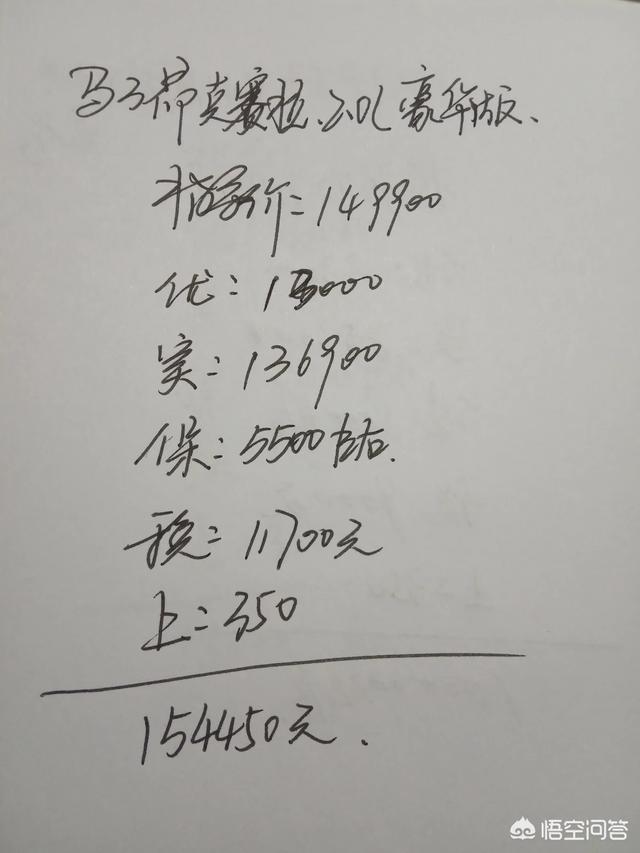 马子昂克赛拉、2.0L豪华版、
指导价:149900
优:13000
实:136900
保:5500左右.
税:11700元
上:350
154450元.
悟空问答